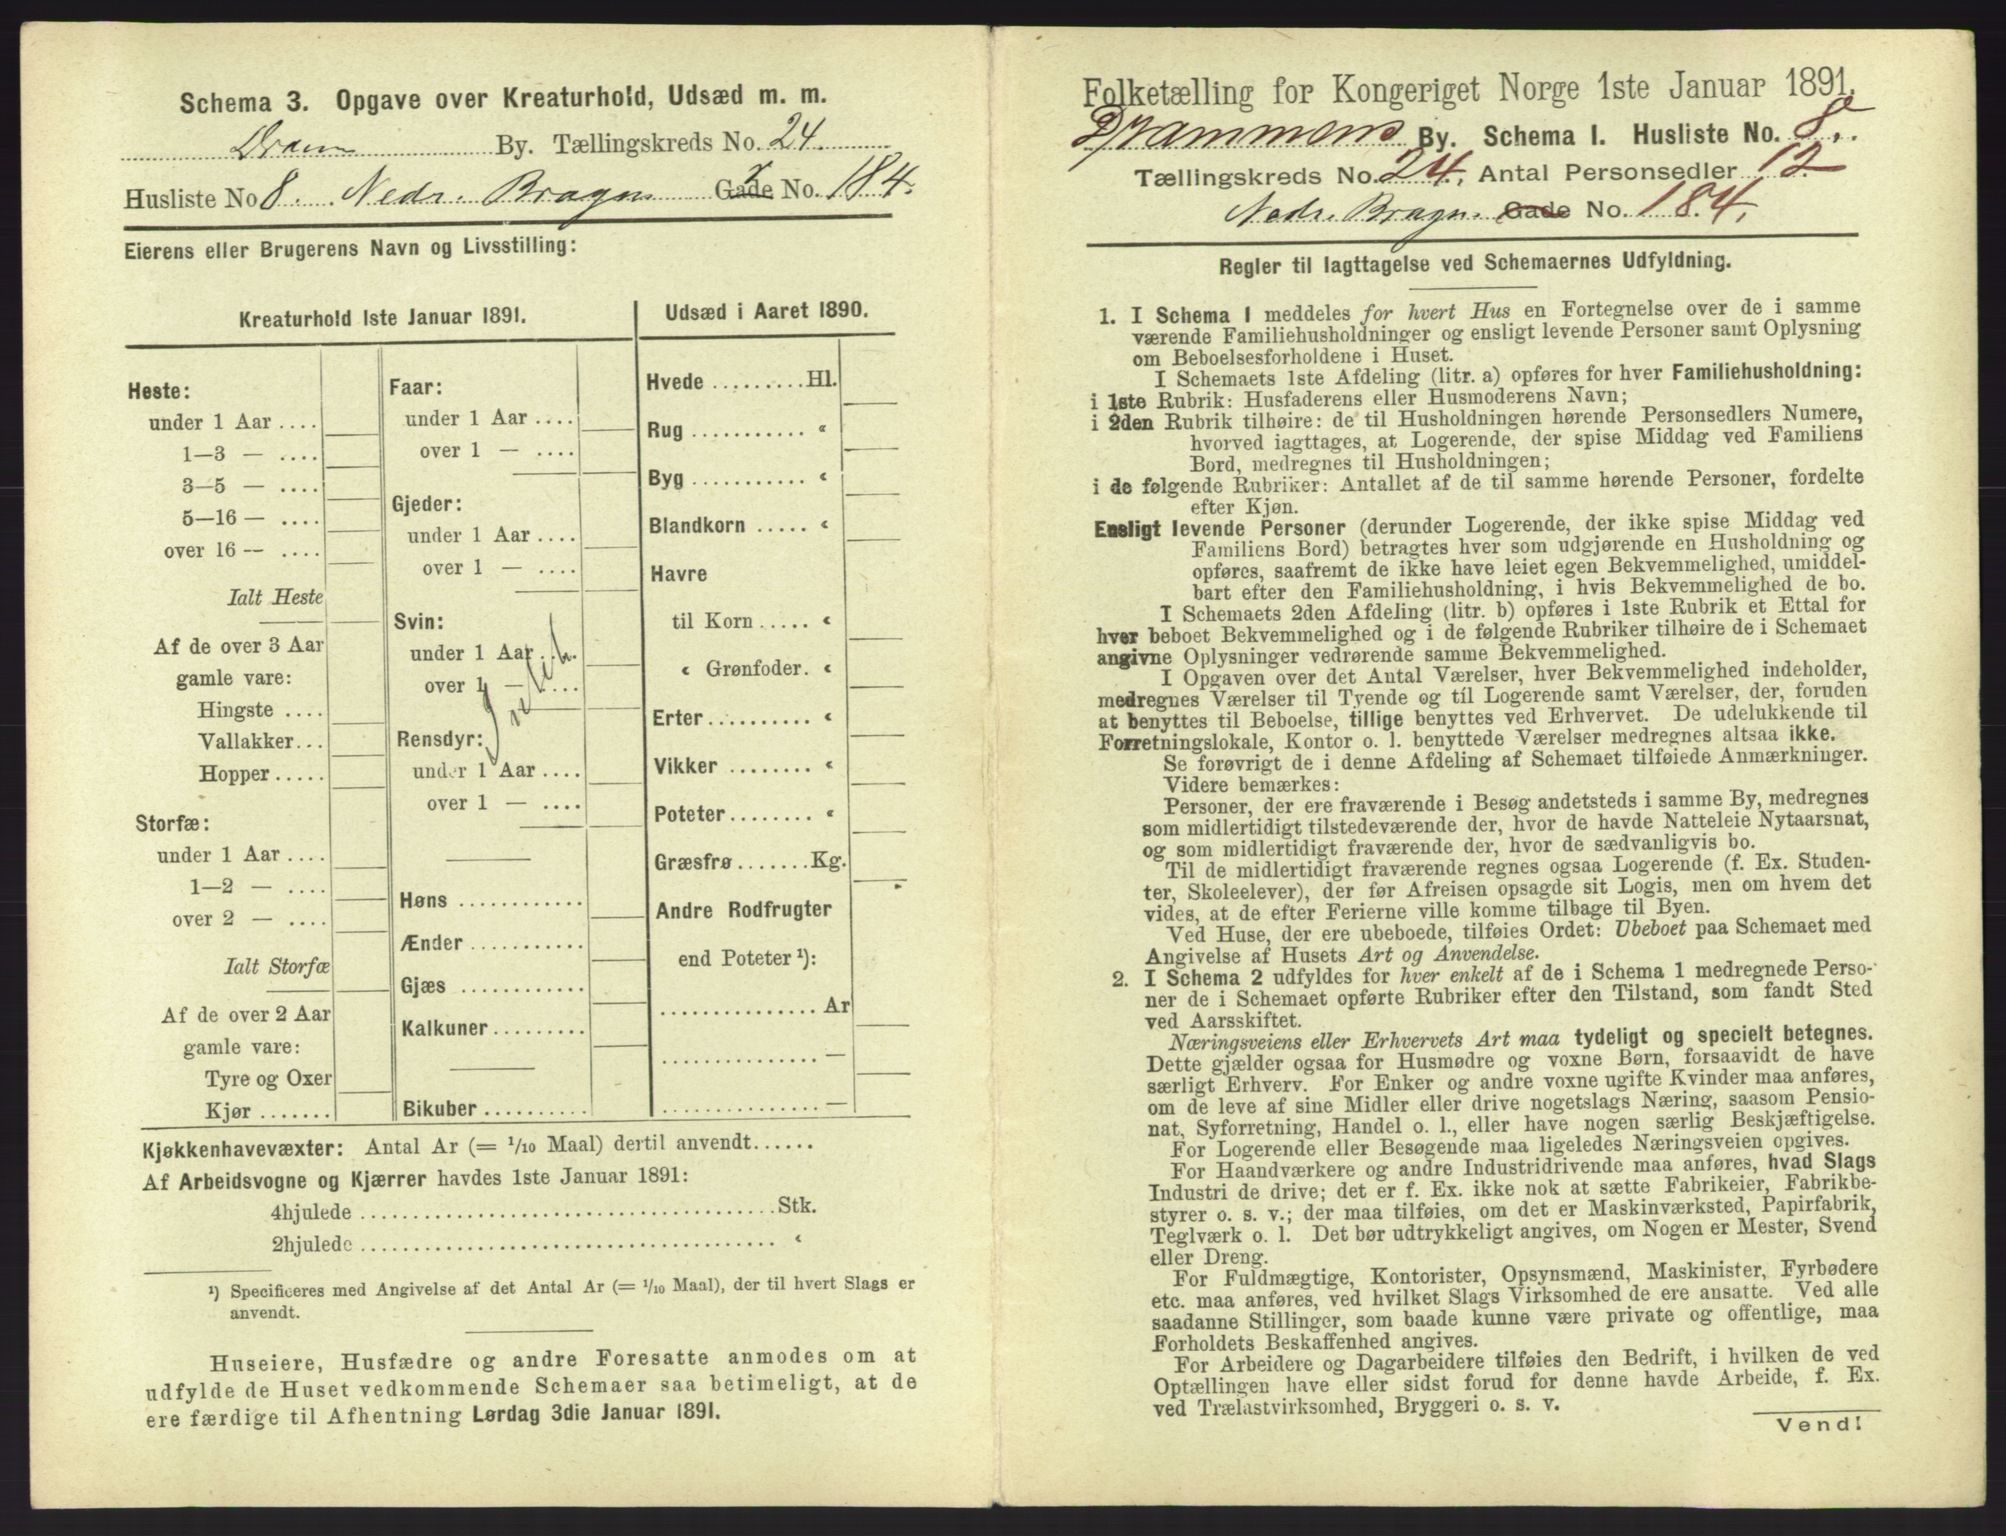 Schema 3. Opgave over Kreaturhold, Udsæd m. m.
Dram By. Tællingskreds No. 24.
Husliste No 8. Nedr. Bragn. Gade No. 184.
Eierens eller Brugerens Navn og Livsstilling:
Kreaturhold 1ste Januar 1891.
Heste:
under 1 Aar ....
1—3 — ....
3—5 — ....
5—16 — ....
over 16 — ....
Ialt Heste
Af de over 3 Aar
gamle vare:
Hingste ....
Vallakker...
Hopper .....
Storfæ:
under 1 Aar ....
1—2 — ....
over 2 — ....
Ialt Storfæ
Af de over 2 Aar
gamle vare:
Tyre og Oxer
Kjør .......
Faar:
under 1 Aar ....
over 1 — ....
Gjeder:
under 1 Aar ....
over 1 — ....
Svin:
under 1 Aar ....
over 1 — ....
Rensdyr:
under 1 Aar ....
over 1 — ....
Høns ............
Ænder ...........
Gjæs ............
Kalkuner.........
Bikuber ..........
Udsæd i Aaret 1890.
Hvede .........Hl.
Rug ........... "
Byg ........... "
Blandkorn ..... "
Havre
til Korn ..... "
" Grønfoder. "
Erter.......... "
Vikker ........ "
Poteter........ "
Græsfrø .......Kg.
Andre Rodfrugter
end Poteter ¹):
............... Ar
............... —
............... —
Kjøkkenhavevæxter: Antal Ar (= 1/10 Maal) dertil anvendt......
Af Arbeidsvogne og Kjærrer havdes 1ste Januar 1891:
4hjulede ........................................Stk.
2hjulede ........................................ "
¹) Specificeres med Angivelse af det Antal Ar (= 1/10 Maal), der til hvert Slags er
anvendt.
Huseiere, Husfædre og andre Foresatte anmodes om at
udfylde de Huset vedkommende Schemaer saa betimeligt, at de
ere færdige til Afhentning Lørdag 3die Januar 1891.
Folketælling for Kongeriget Norge 1ste Januar 1891.
Drammens By. Schema I. Husliste No. 8.
Tællingskreds No. 24. Antal Personsedler 12
Nedr. Bragn. Gade No. 184.
Regler til Iagttagelse ved Schemaernes Udfyldning.
1. I Schema 1 meddeles for hvert Hus en Fortegnelse over de i samme
værende Familiehusholdninger og ensligt levende Personer samt Oplysning
om Beboelsesforholdene i Huset.
I Schemaets 1ste Afdeling (litr. a) opføres for hver Familiehusholdning:
i 1ste Rubrik: Husfaderens eller Husmoderens Navn;
i 2den Rubrik tilhøire: de til Husholdningen hørende Personsedlers Numere,
hvorved iagttages, at Logerende, der spise Middag ved Familiens
Bord, medregnes til Husholdningen;
i de følgende Rubriker: Antallet af de til samme hørende Personer, fordelte
efter Kjøn.
Ensligt levende Personer (derunder Logerende, der ikke spise Middag ved
Familiens Bord) betragtes hver som udgjørende en Husholdning og
opføres, saafremt de ikke have leiet egen Bekvemmelighed, umiddel-
bart efter den Familiehusholdning, i hvis Bekvemmelighed de bo.
I Schemaets 2den Afdeling (litr. b) opføres i 1ste Rubrik et Ettal for
hver beboet Bekvemmelighed og i de følgende Rubriker tilhøire de i Schemaet
angivne Oplysninger vedrørende samme Bekvemmelighed.
I Opgaven over det Antal Værelser, hver Bekvemmelighed indeholder,
medregnes Værelser til Tyende og til Logerende samt Værelser, der, foruden
at benyttes til Beboelse, tillige benyttes ved Erhvervet. De udelukkende til
Forretningslokale, Kontor o. l. benyttede Værelser medregnes altsaa ikke.
Se forøvrigt de i denne Afdeling af Schemaet tilføiede Anmærkninger.
Videre bemærkes:
Personer, der ere fraværende i Besøg andetsteds i samme By, medregnes
som midlertidigt tilstedeværende der, hvor de havde Natteleie Nytaarsnat,
og som midlertidigt fraværende der, hvor de sædvanligvis bo.
Til de midlertidigt fraværende regnes ogsaa Logerende (f. Ex. Studen-
ter, Skoleelever), der før Afreisen opsagde sit Logis, men om hvem det
vides, at de efter Ferierne ville komme tilbage til Byen.
Ved Huse, der ere ubeboede, tilføies Ordet: Ubeboet paa Schemaet med
Angivelse af Husets Art og Anvendelse.
2. I Schema 2 udfyldes for hver enkelt af de i Schema 1 medregnede Perso-
ner de i Schemaet opførte Rubriker efter den Tilstand, som fandt Sted
ved Aarsskiftet.
Næringsveiens eller Erhvervets Art maa tydeligt og specielt betegnes.
Dette gjælder ogsaa for Husmødre og voxne Børn, forsaavidt de have
særligt Erhverv. For Enker og andre voxne ugifte Kvinder maa anføres,
om de leve af sine Midler eller drive nogetslags Næring, saasom Pensio-
nat, Syforretning, Handel o. l., eller have nogen særlig Beskjæftigelse.
For Logerende eller Besøgende maa ligeledes Næringsveien opgives.
For Haandværkere og andre Industridrivende maa anføres, hvad Slags
Industri de drive; det er f. Ex. ikke nok at sætte Fabrikeier, Fabrikbe-
styrer o. s. v.; der maa tilføies, om det er Maskinværksted, Papirfabrik,
Teglværk o. l. Det bør udtrykkeligt angives, om Nogen er Mester, Svend
eller Dreng.
For Fuldmægtige, Kontorister, Opsynsmænd, Maskinister, Fyrbødere
etc. maa anføres, ved hvilket Slags Virksomhed de ere ansatte. Ved alle
saadanne Stillinger, som baade kunne være private og offentlige, maa
Forholdets Beskaffenhed angives.
For Arbeidere og Dagarbeidere tilføies den Bedrift, i hvilken de ved
Optællingen have eller sidst forud for denne havde Arbeide, f. Ex.
ved Trælastvirksomhed, Bryggeri o. s. v.
Vend!